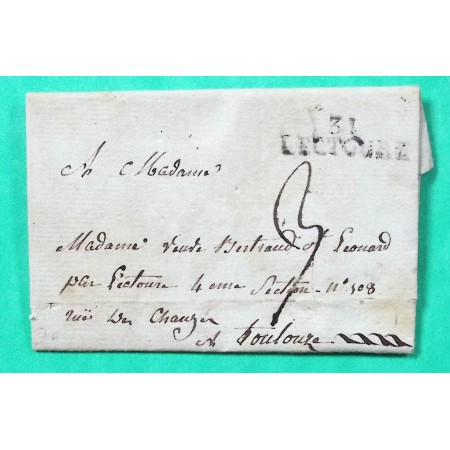 31
LECTOURE
A Madame
3
Madame veuve Bertrand St Leonard
par Lectoure 4eme Section n° 108
ruë des Changes
A Toulouze